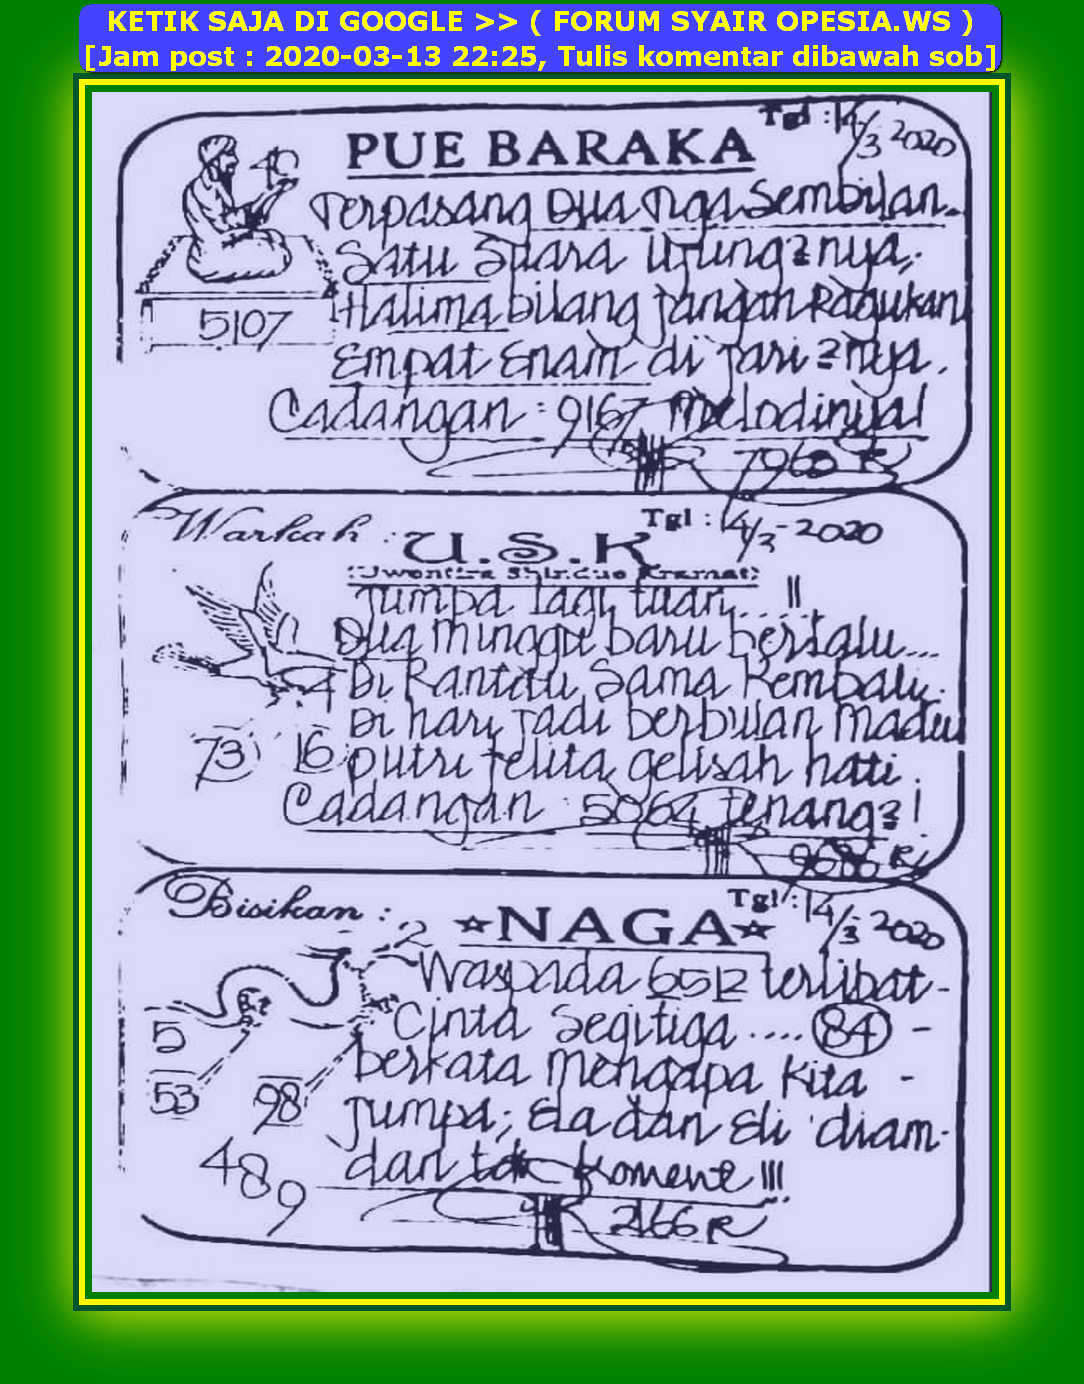 KETIK SAJA DI GOOGLE >> ( FORUM SYAIR OPESIA.WS )
[Jam post : 2020-03-13 22:25, Tulis komentar dibawah sob]
Tgl : 14/3-2020
PUE BARAKA
Terpasang Dua Tiga Sembilan.
Satu Suara Ujung2nya,
5107
Halima bilang jangan Ragukan
Empat Enam di jari2nya.
Cadangan : 9167 Melodinya!
Warkah :
U.S.K
Tgl : 14/3-2020
Jumpa lagi tuan.... !!
Dua Minggu baru berlalu...
4 Di Rantau, Sama Kembali.
Di hari jadi berbulan Madu
73 16
putri jelita gelisah hati.
Cadangan : 5064 tenang2!
9686 R
Bisikan :
NAGA
Tgl : 14/3-2020
2
Waspada 6512 terlibat-
5
Cinta Segitiga .... 84 -
berkata Mengapa Kita -
53 98
Jumpa; Ela dan Eli diam-
489
dan tak Koment !!!
2166 R